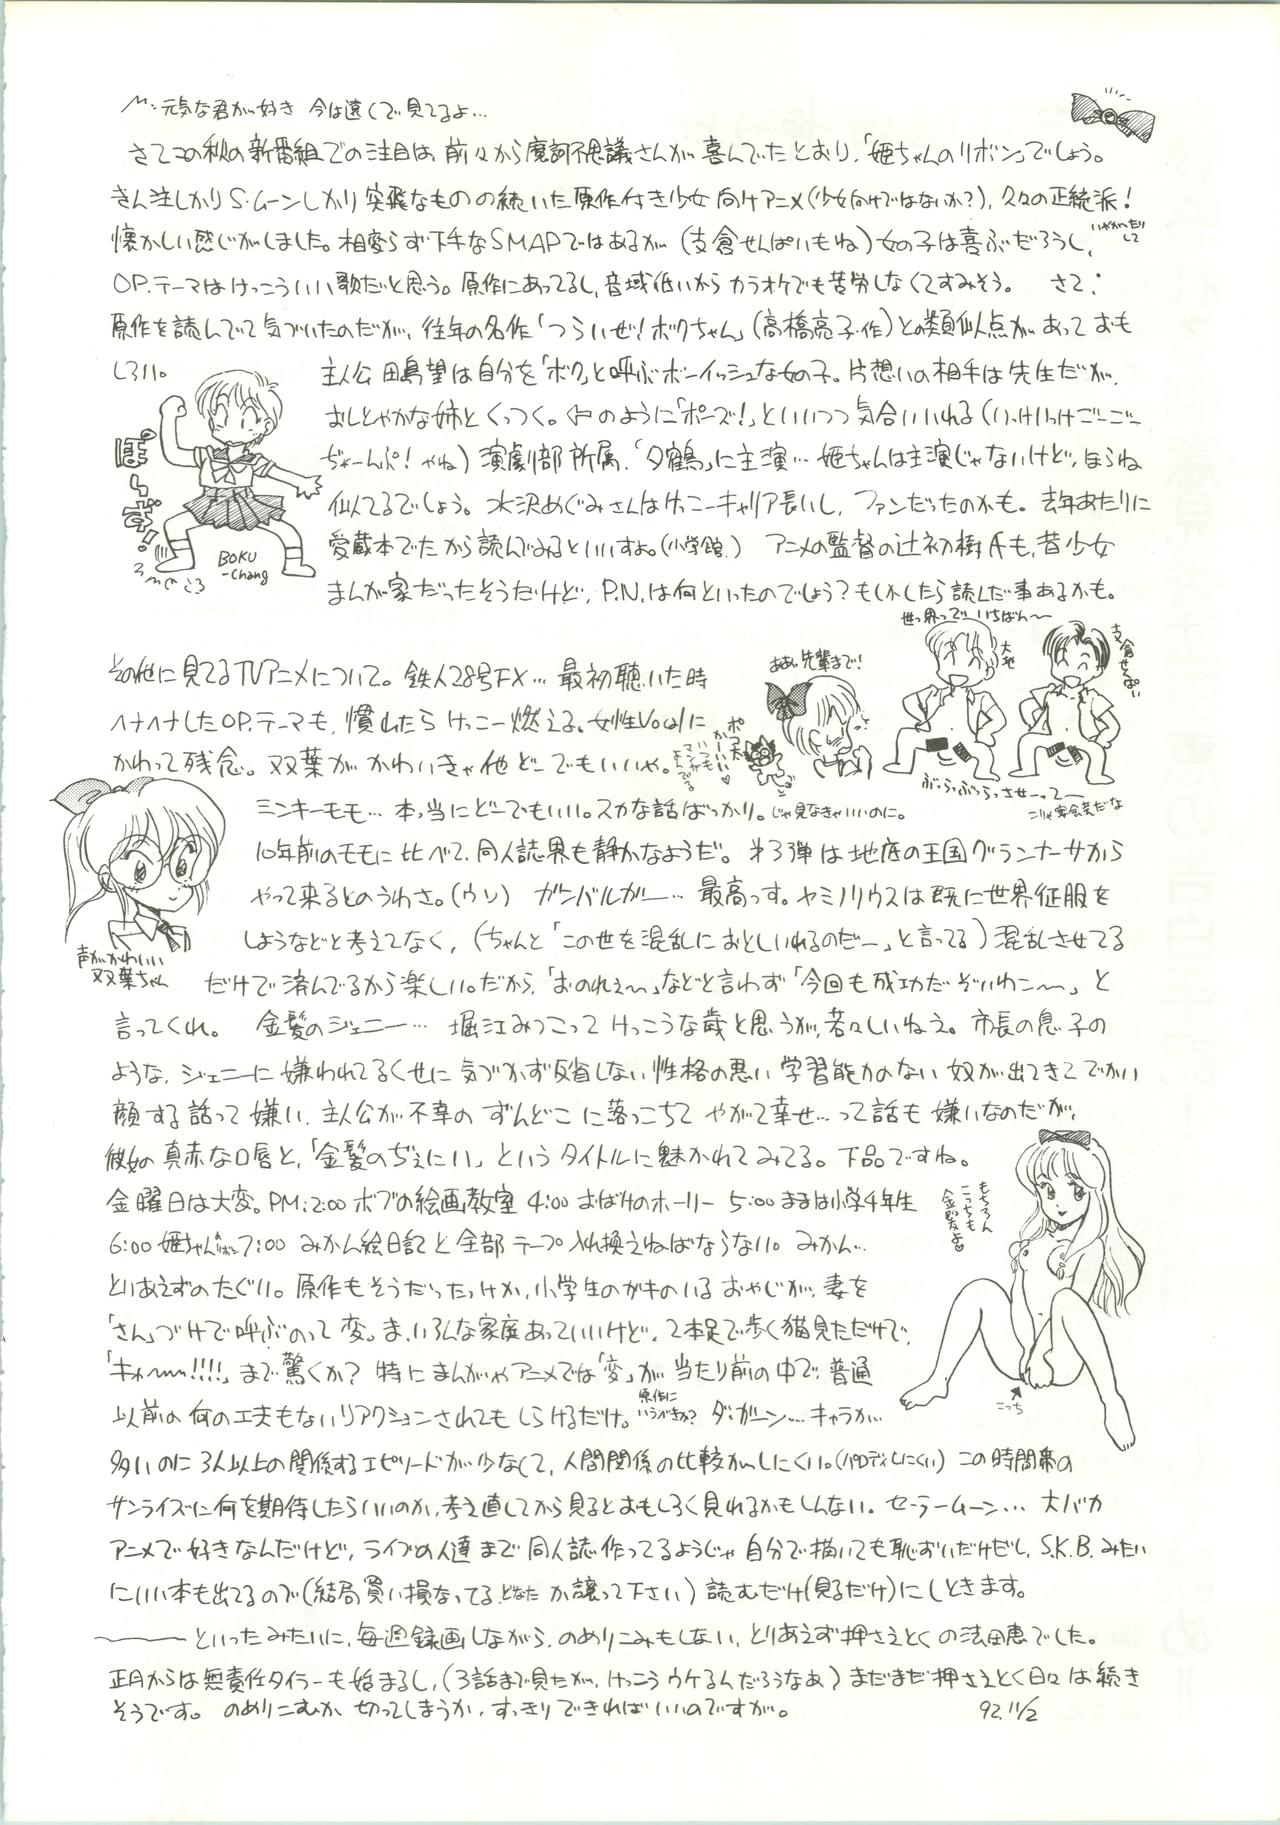 元気な君が好き 今は遠くで見てるよ…
さてこの秋の新番組での注目は、前々から魔訶不思議さんが喜んでたとおり、「姫ちゃんのリボン」でしょう。
きん注しかりS・ムーンしかり突飛なものの続いた原作付き少女向けアニメ(少女向けではないか?)、久々の正統派!
懐かしい感じがしました。相変らず下手なSMAPではあるが(支倉せんぱいもね)女の子は喜ぶだろうし、
いやがったりして
OP.テーマはけっこういい歌だと思う。原作にあってるし、音域低いからカラオケでも苦労しなくてすみそう。 さて、
原作を読んでて気づいたのだが、往年の名作「つらいぜ!ボクちゃん」(高橋亮子・作)との類似点があっておも
しろい。
主人公 田島望は自分を「ボク」と呼ぶボーイッシュな女の子。片想いの相手は先生だが、
おしとやかな姉とくっつく。のように「ポーズ!」といいつつ気合いいれる(いけいけごーごー
ぢゃーんぷ!やね)演劇部所属、「夕鶴」に主演…姫ちゃんは主演じゃないけど、ほらね
似てるでしょう。水沢めぐみさんはけっこーキャリア長いし、ファンだったのかも。去年あたりに
愛蔵本でたから読んでみるといいすよ。(小学館) アニメの監督の辻初樹氏も、昔少女
まんが家だったそうだけど、P.N.は何といったのでしょう?もしかしたら読んだ事あるかも。
ぽーず!
BOKU
-chang
世っ界っでいちばん〜
大地
支倉せんぱい
ああっ先輩まで!
ポコ太
かーいい♡
ぶっらっぶっらっさせーって—
こりゃ宴会芸だな
その他に見てるTVアニメについて。鉄人28号FX…最初聴いた時
ヘナヘナしたOP.テーマも、慣れたらけっこー燃える。女性Vocalに
かわって残念。双葉がかわいきゃ他どーでもいいや。
声がかわいい
双葉ちゃん
ミンキーモモ…本っ当にどーでもいい。スカな話ばっかり。じゃ見なきゃいいのに。
10年前のモモに比べて、同人誌界も静かなようだ。第3弾は地底の王国グランナーサから
やって来るとのうわさ。(ウソ) ガンバルガー…最高っす。ヤミノリウスは既に世界征服を
しようなどと考えてなく、(ちゃんと「この世を混乱におとしいれるのだー」と言ってる)混乱させてる
だけで済んでるから楽しい。だから、「おのれぇ〜」などと言わず「今回も成功だぞいわこ〜」と
言ってくれ。 金髪のジェニー…堀江みつこってけっこうな歳と思うが、若々しいねえ。市長の息子の
ような、ジェニーに嫌われてるくせに気づかず反省しない性格の悪い学習能力のない奴が出てきてでかい
顔する話って嫌い、主人公が不幸のずんどこに落っこちてやがて幸せ…って話も嫌いなのだが、
彼女の真赤な口唇と、「金髪のぢぇにい」というタイトルに魅かれてみてる。下品ですね。
もちろん
こっちも
金髪よ♡
こっち
金曜日は大変。PM:2:00 ボブの絵画教室 4:00 おばけのホーリー 5:00 ままは小学4年生
6:00 姫ちゃんのリボン 7:00 みかん絵日記と全部テープ入れ換えねばならない。みかん…
とりあえずのたぐい。原作もそうだったっけか、小学生のガキのいるおやじが、妻を
「さん」づけで呼ぶのって変。ま、いろんな家庭あっていいけど、2本足で歩く猫見ただけで、
「キャ〜〜!!!!」まで驚くか?特にまんがやアニメでは「変」が当たり前の中で、普通
以前の何の工夫もないリアクションされてもしらけるだけ。原作にいうべきか? ダ・ガーン…キャラが
多いのに3人以上の関係するエピソードが少なくて、人間関係の比較がしにくい。(パロディしにくい) この時間帯の
サンライズに何を期待したらいいのか、考え直してから見るとおもしろく見れるかもしんない。セーラームーン…大バカ
アニメで好きなんだけど、ライブの人達まで同人誌作ってるようじゃ自分で描いても恥ずいだけだし、S.K.B.みたい
にいい本も出てるので(結局買い損なってる、どなたか譲って下さい)読むだけ(見るだけ)にしときます。
——といったみたいに、毎週録画しながら、のめりこみもしない、とりあえず押さえとくの法田恵でした。
正月からは無責任タイラーも始まるし、(3話まで見たが、けっこうウケるんだろうなあ)まだまだ押さえとく日々は続き
そうです。 のめりこむか切ってしまうか、すっきりできればいいのですが。 92.11/2